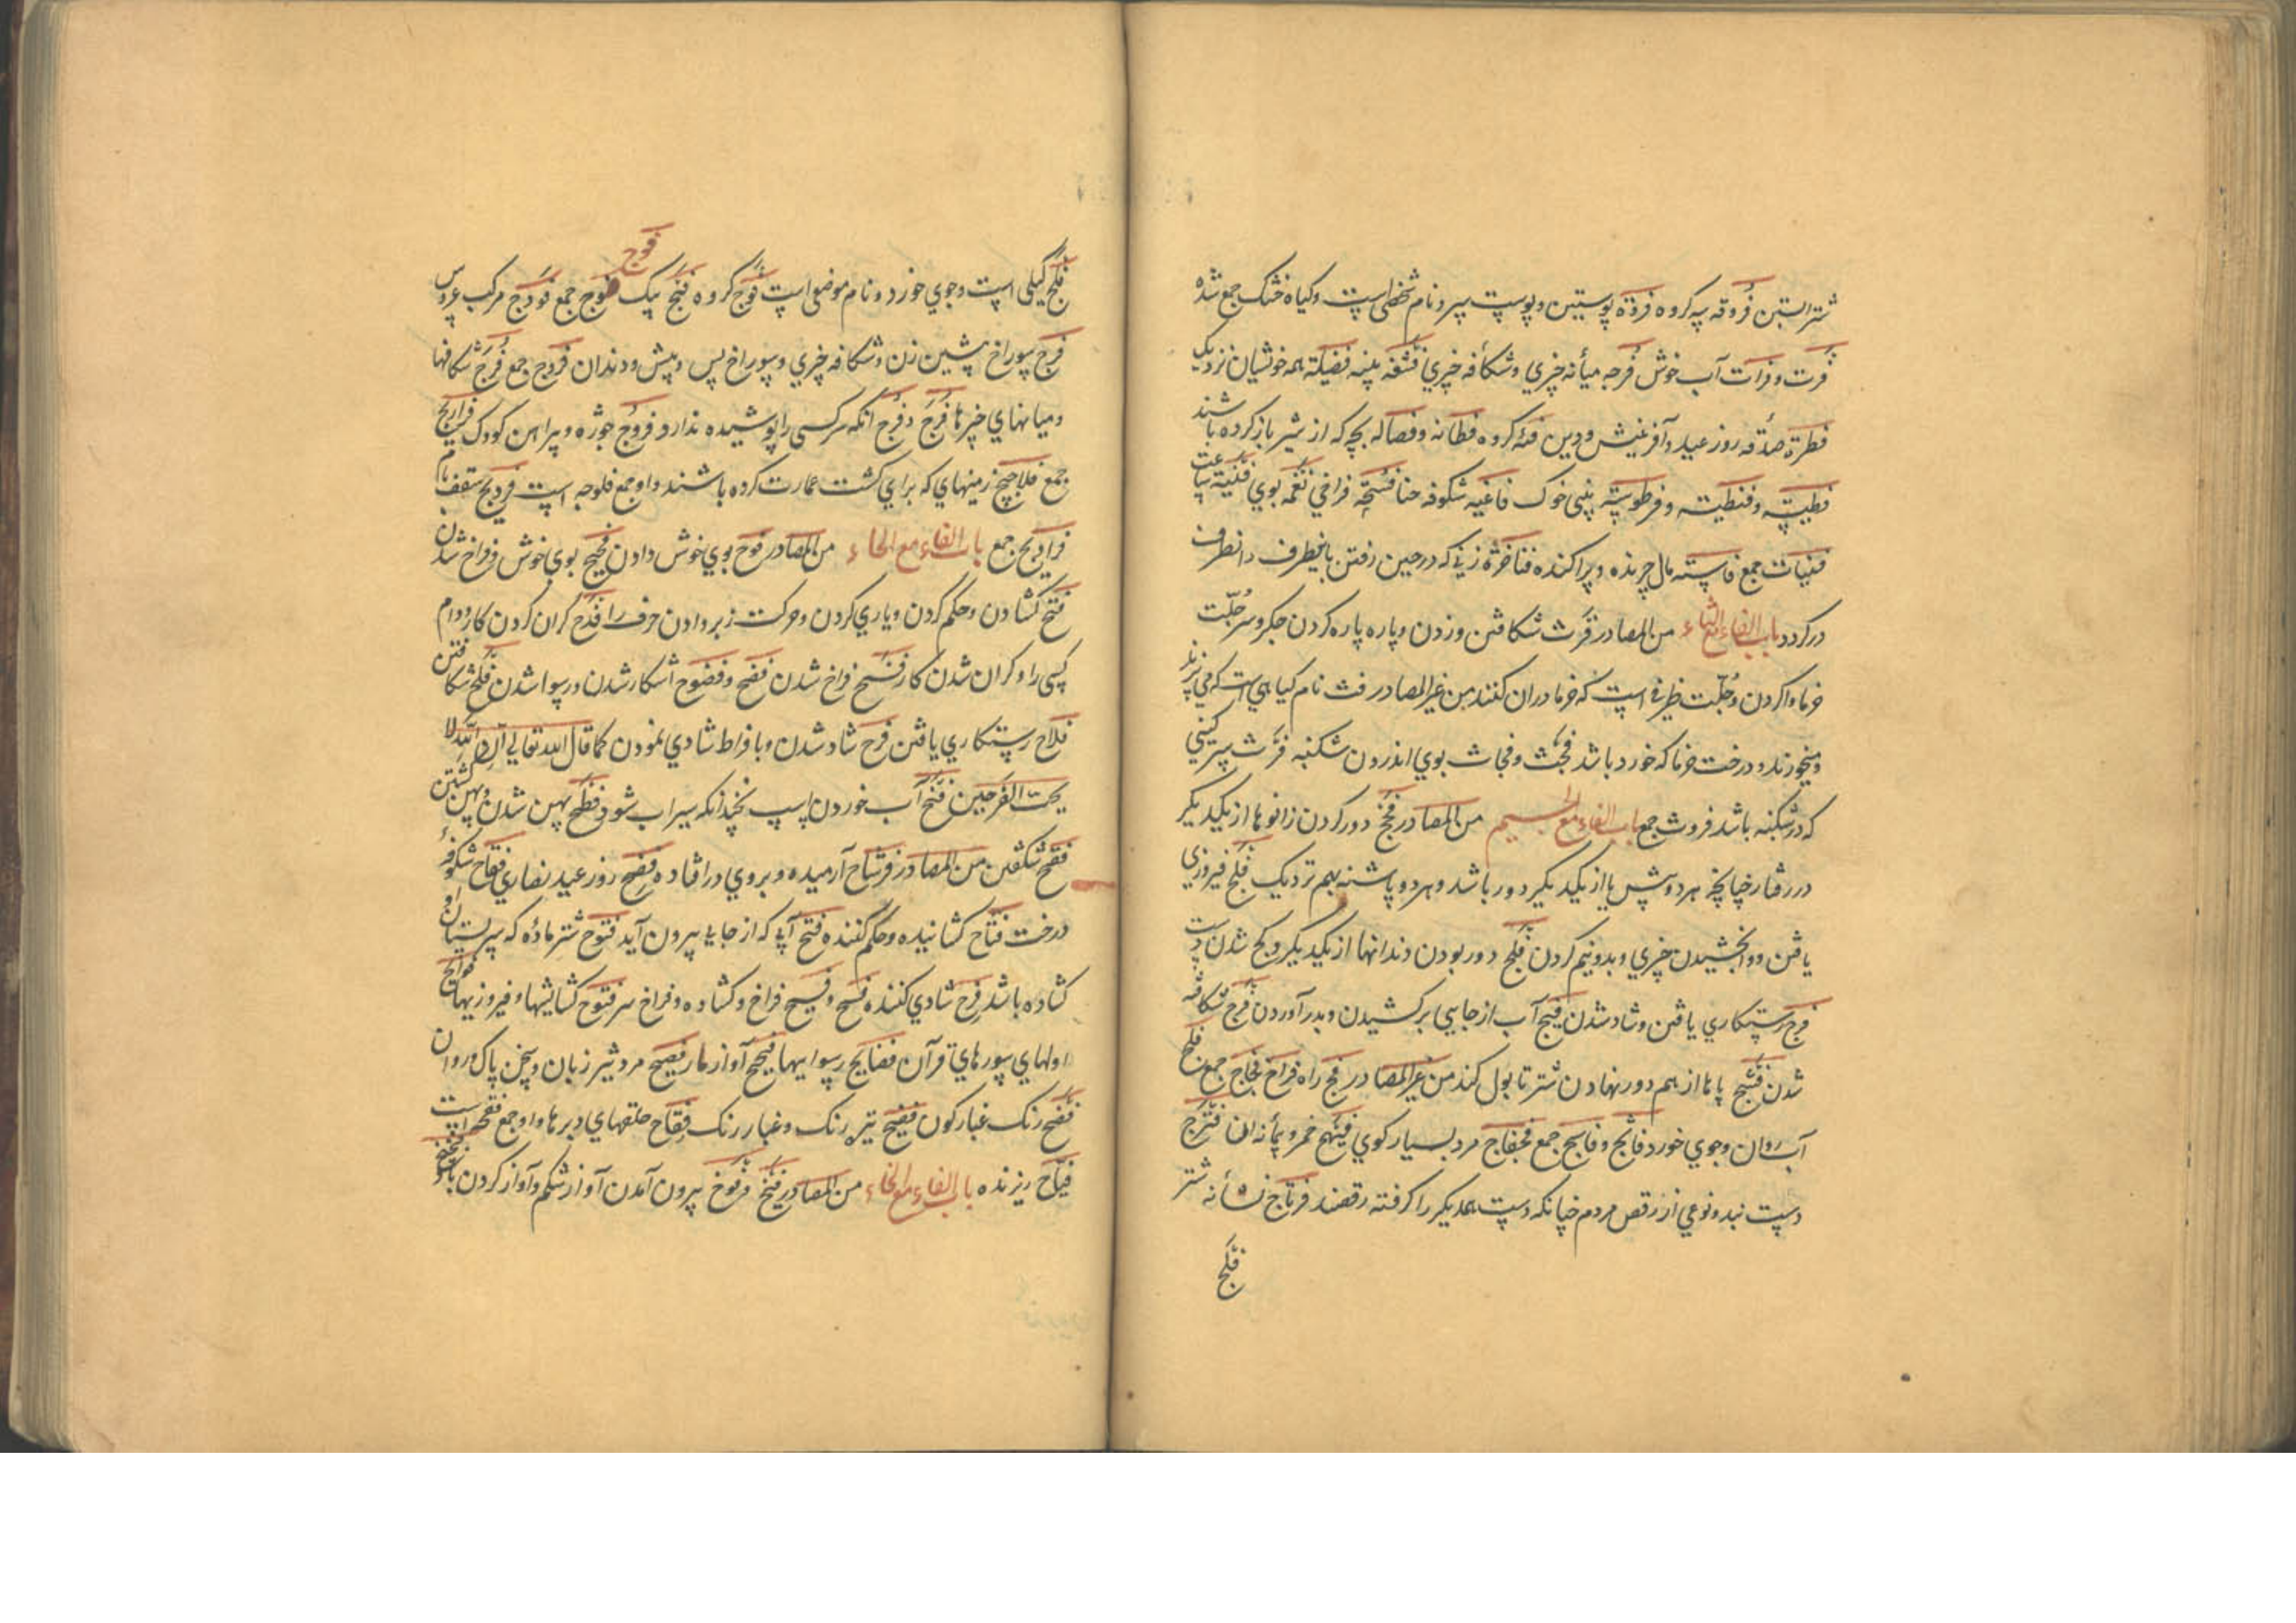 شتر آبستن فُروقه پیه کروه فروة پوستین و پوست سر و نام شخصی است و کیاه خشک جمع شده
فرت و فرات آب خوش فُرجه میانه چیزي و شکافه چیزي فصیلة همه خویشان نزدیک
فطرة صدقه روز عید و آفرینش و دین فئه کروه فطانه و فصاله بچه که از شیر باز کرده باشند
فطیسه و فنطیسه و فرطوسه بینی خوک فاغیه شکوفه حنا فسحة فراخي فغمه بوي فنیة ساعت
فنیات جمع فاشیه مال چرنده و پراکنده فناخرة زني که در حین رفتن باینطرف و انطرف
در کردد باب الفاء مع الثاء من المصادر فرث شکافتن و زدن و پاره پاره کردن جکر و سر جُلّت
خرما وا کردن و جُلّت ظرفي است که خرما در ان کنند من غیر المصادر فث نام کیاهي است که مي پزند
و میخورند و درخت خرما که خورد باشد فحث و فحاث بوي اندرون شکنبه فرث سرکینی
که در شکنبه باشد فروث جمع باب الفاء مع الجیم من المصادر فحج دور کردن زانوها از یکدیکر
در رفتار چنانچه هر دو پیش پا از یکدیکر دور باشد و هر دو پاشنه بهم نزدیک فلج فیروزي
یافتن و وابخشیدن چیزي و بدو نیم کردن فلج دور بودن دندانها از یکدیکر و کج شدن دست
فرج رستکاري یافتن و شاد شدن فیج آب از جایي برکشیدن و بدر آوردن فرج شکافته
شدن فشج پاها از هم دور نهادن شتر تا بول کند من غیر المصادر فج راه فراخ فجاج جمع فلج
آب روان و جوي خورد فالج و فوالج جمع فجفاج مرد بسیار کوي فیهج خمر و پیمانه ان فنزج
دست بند و نوعي از رقص مردم چنانکه دست همدیکر را کرفته رقصند فرتاج نشانه شتر
فلج
فوج
فلج کیلی است و جوي خورد و نام موضعي است فوج کروه فیج پیک فیوج جمع فودج مرکب عروس
فرج سوراخ پیشین زن و شکافه چیزي و سوراخ پس و پیش و دندان فروج جمع فُرَج شکافها
و میانهاي چیزها فُرُج و فِرج انکه سر کسی را پوشیده ندارد فروج جوژه و پیراهن کودک فراریج
جمع فلالیج زمینهاي که براي کشت عمارت کرده باشند و او جمع فلوجه است سقف بام
جمع باب الفاء مع الحاء من المصادر فوح بوي خوش دادن فیح بوي خوش و فراخ شدن
فتح کشادن و حکم کردن و یاري کردن و حرکت زبر دادن حرف را فدح کران کردن کار و وام
کسی را و کران شدن کار فسح فراخ شدن فضح و فضوح آشکار شدن و رسوا شدن فلح شکافتن
فلاح رستکاري یافتن فرح شاد شدن و بافراط شادي نمودن کما قال الله تعالي ان الله لا
یحب الفرحین فنح آب خوردن اسپ نچندانکه سیراب شود فطح پهن شدن و پهن کشتن
فقح شکفتن من المصادر فرشاح آرمیده و بروي در افتاده فصح روز عید نصاري فقاح شکوفهٔ
درخت فتاح کشاننده و حکم کننده فتح آبي که از جایي بیرون آید فتوح شتر مادٔه که سر پستان او
کشاده باشد فرح شادي کننده فسح و فسیح فراخ و کشاده و فراخ سر فتوح کشایشها و فیروزیها فواتح
اولهاي سورهاي قرآن فضایح رسواییها فحیح آواز مار فصیح مرد شیرزبان و سخن پاک و روان
فضح رنک غبارکون فضیح تیره رنک و غبار رنک فقاح حلقهاي دبرها و او جمع فقحه است
فیاح ریزنده باب الفاء مع الخاء من المصادر فیخ و فوخ بیرون آمدن آواز شکم و آواز کردن باد